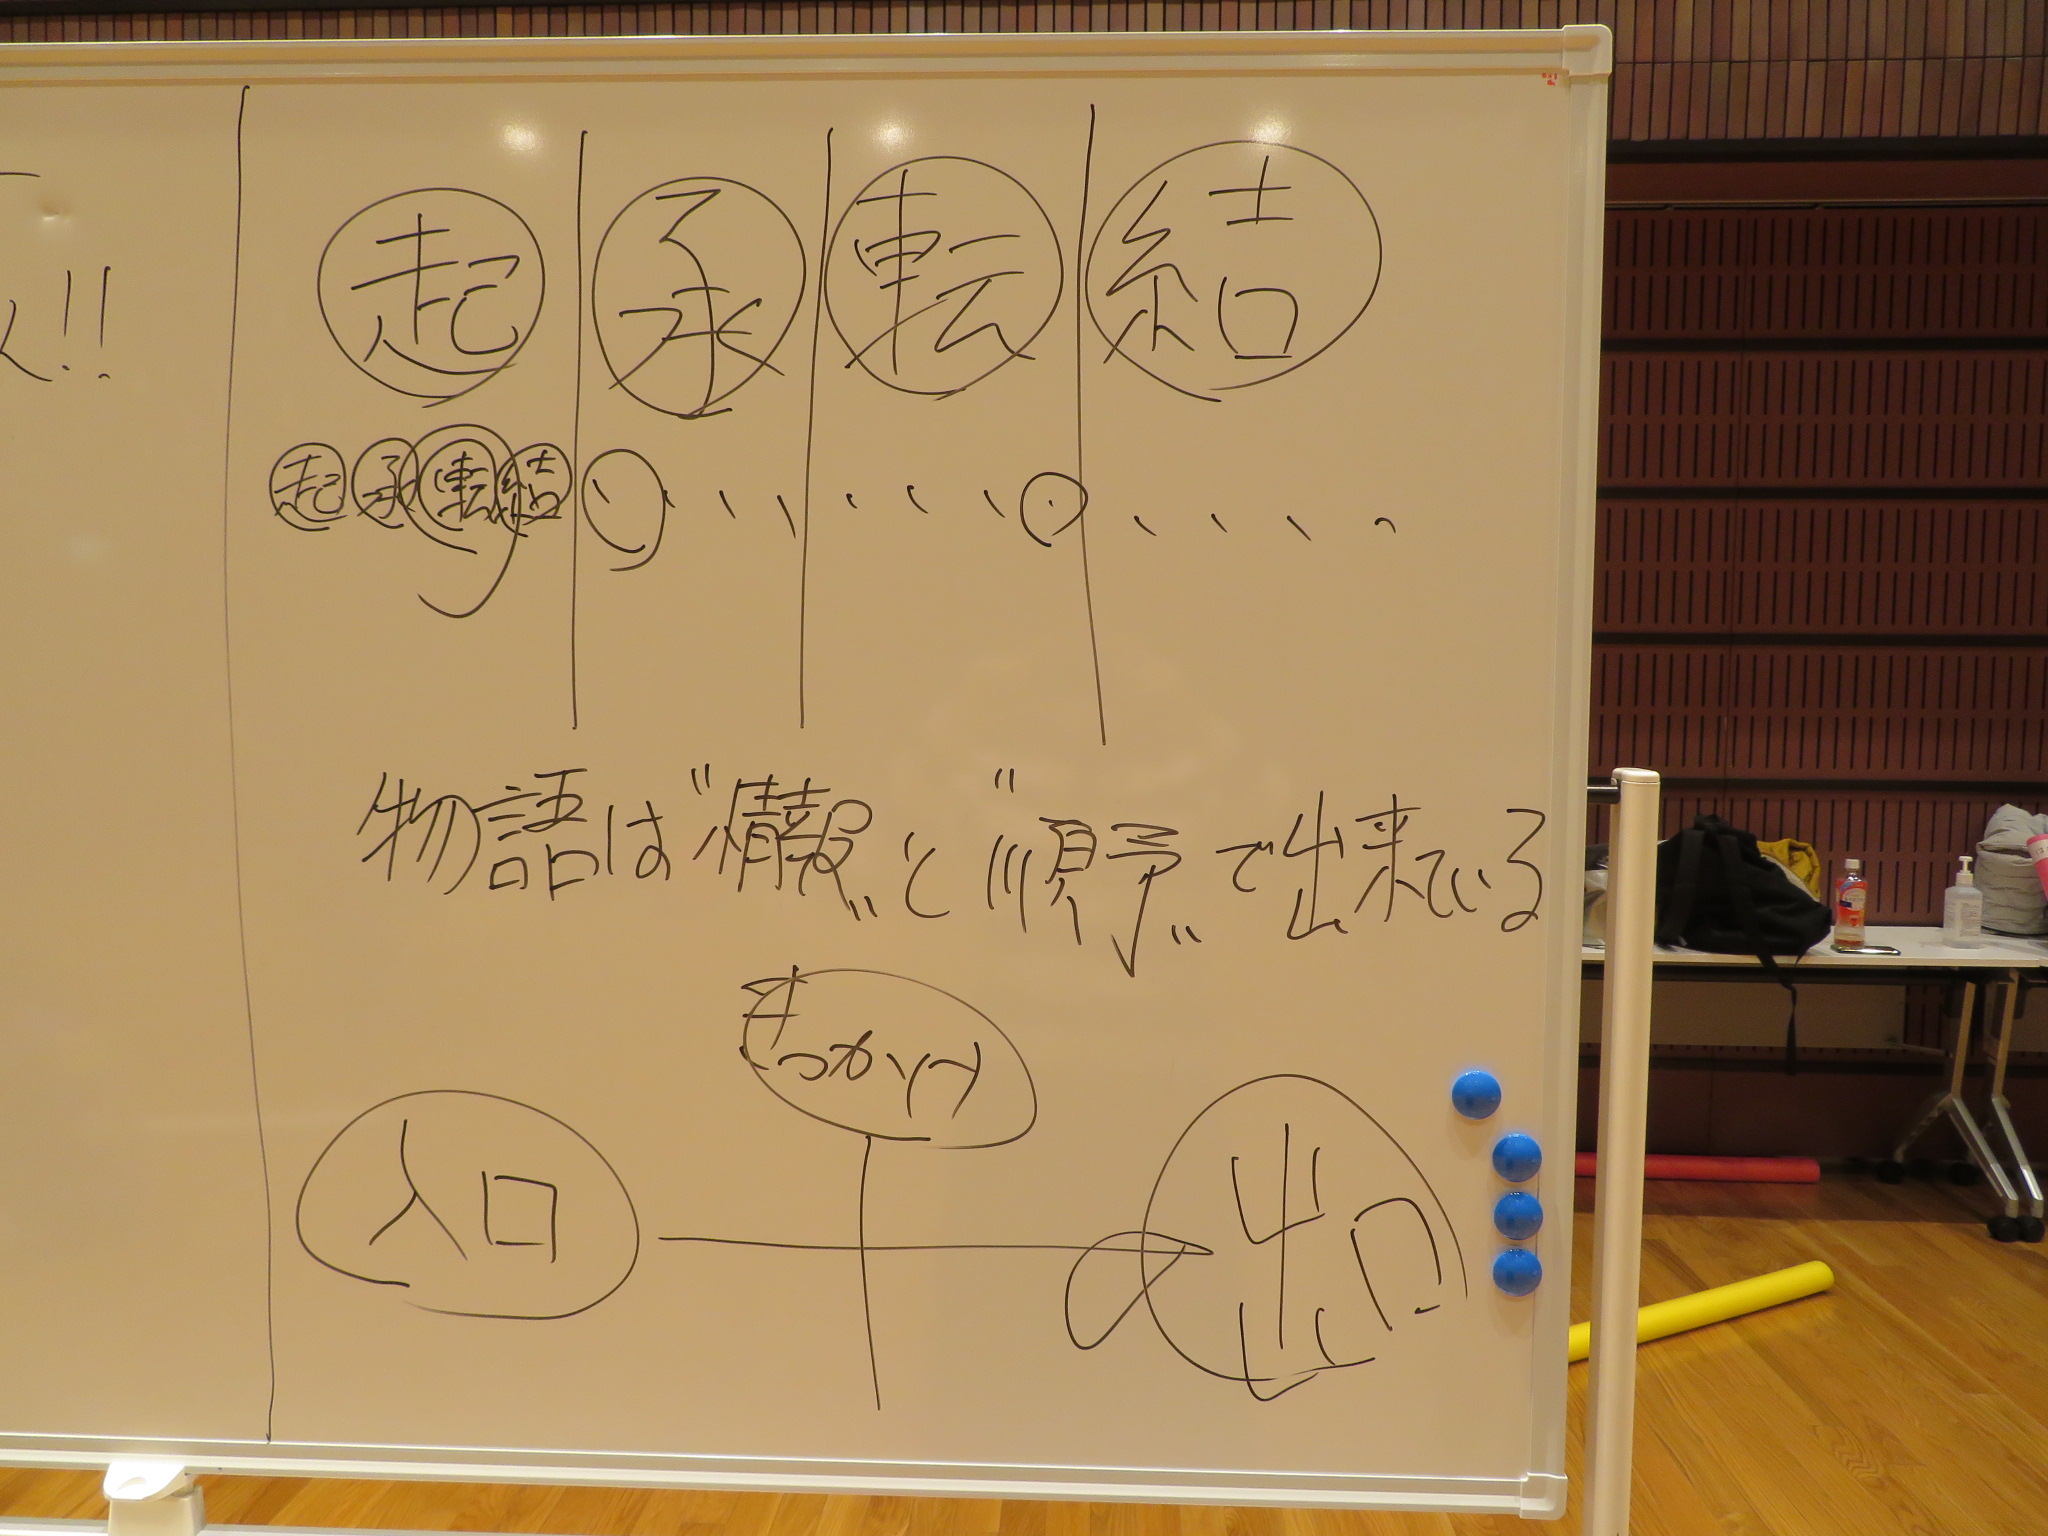 !!
起 承 転 結
起 承 転 結
物語は"情報"と"順予"で出来ている
きっかけ
入口
出口